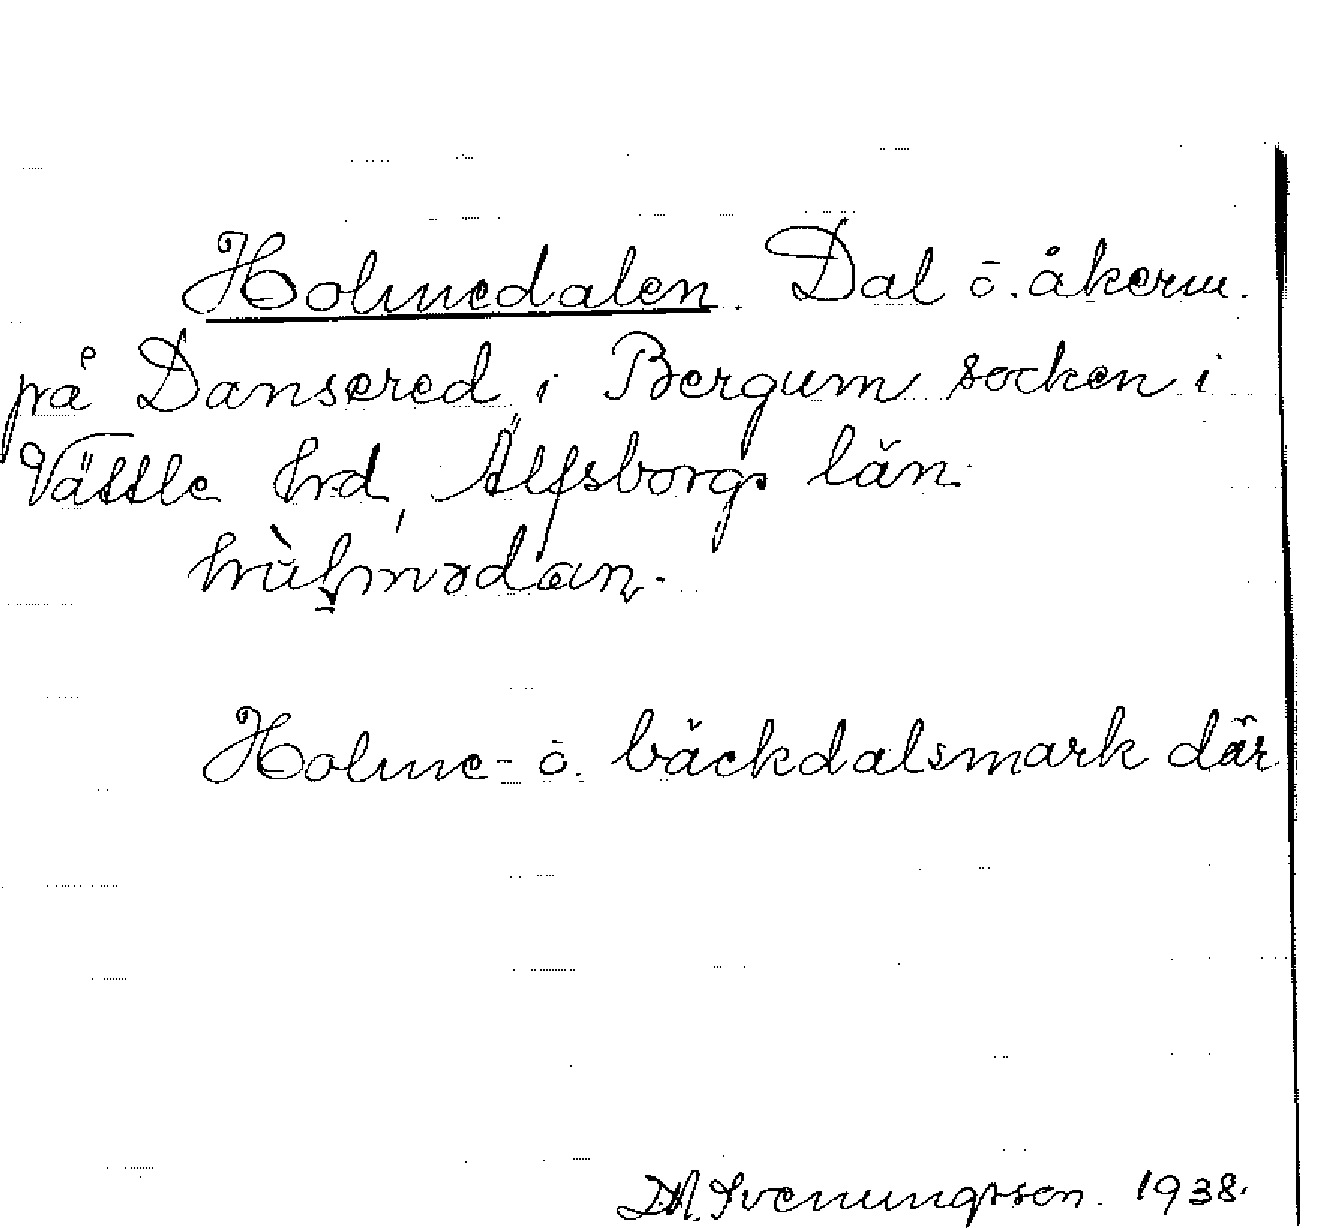 Holmedalen. Dal o. åkerm.
på Dansered i Bergum socken i
Vättle hrd, Älfsborgs län.
Holme- o. bäckdalsmark där
D.A. Svenungsson. 1938.